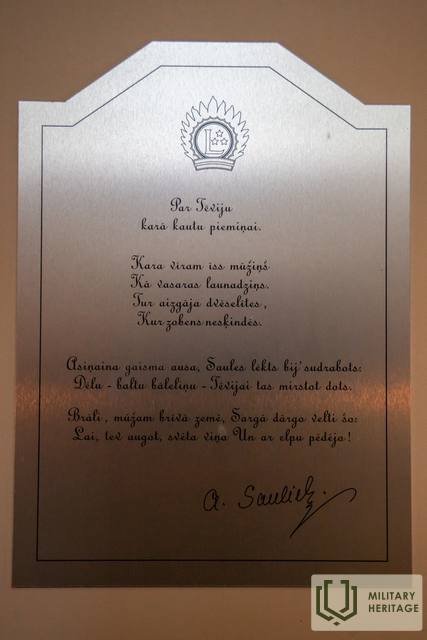 L
Par Tēviju
karā kautu piemiņai.
Kara vīram īss mūžiņš
Kā vasaras launadziņš.
Tur aizgāja dvēselītes,
Kur zobens neskindēs.
Asiņaina gaisma ausa, Saules lēkts bij' sudrabots:
Dēlu - baltu bāleliņu - Tēvijai tas mirstot dots.
Brāli, mūžam brīvā zemē, Sargā dārgo velti šo:
Lai, tev augot, svēta viņa Un ar elpu pēdējo!
A. Saulietis
MILITARY
HERITAGE